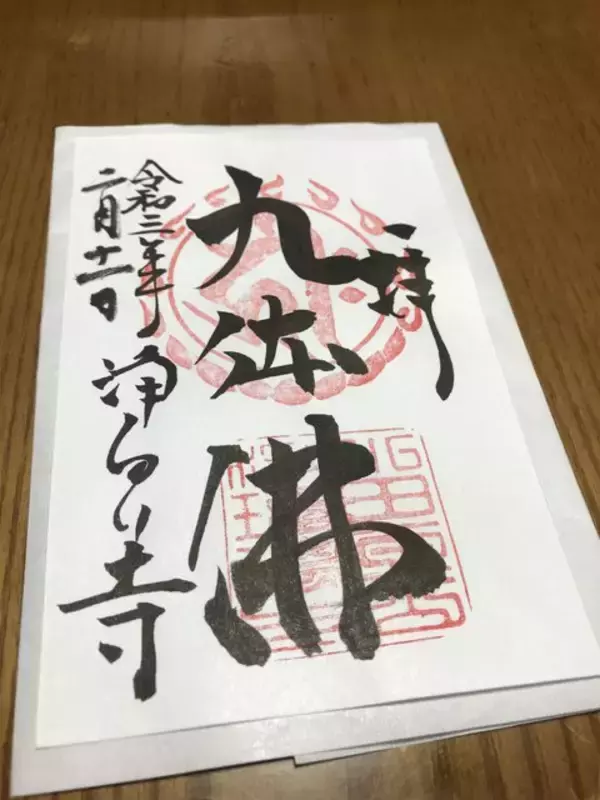 拝
九体佛
令和三年
二月十一日
浄るり寺